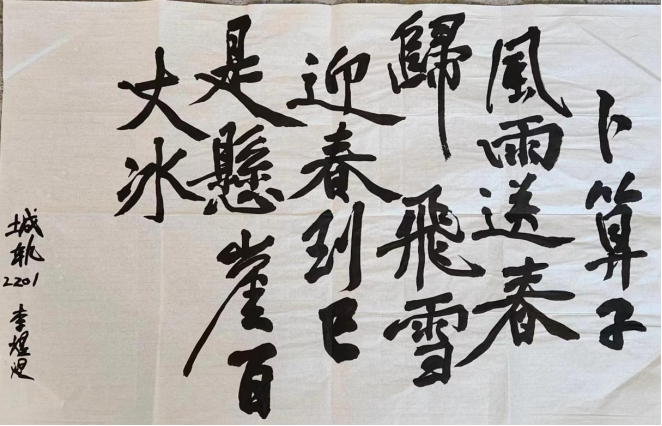 卜算子
風雨送春
歸飛雪
迎春到已
是懸崖百
丈冰
城軌
2201
李煜煜